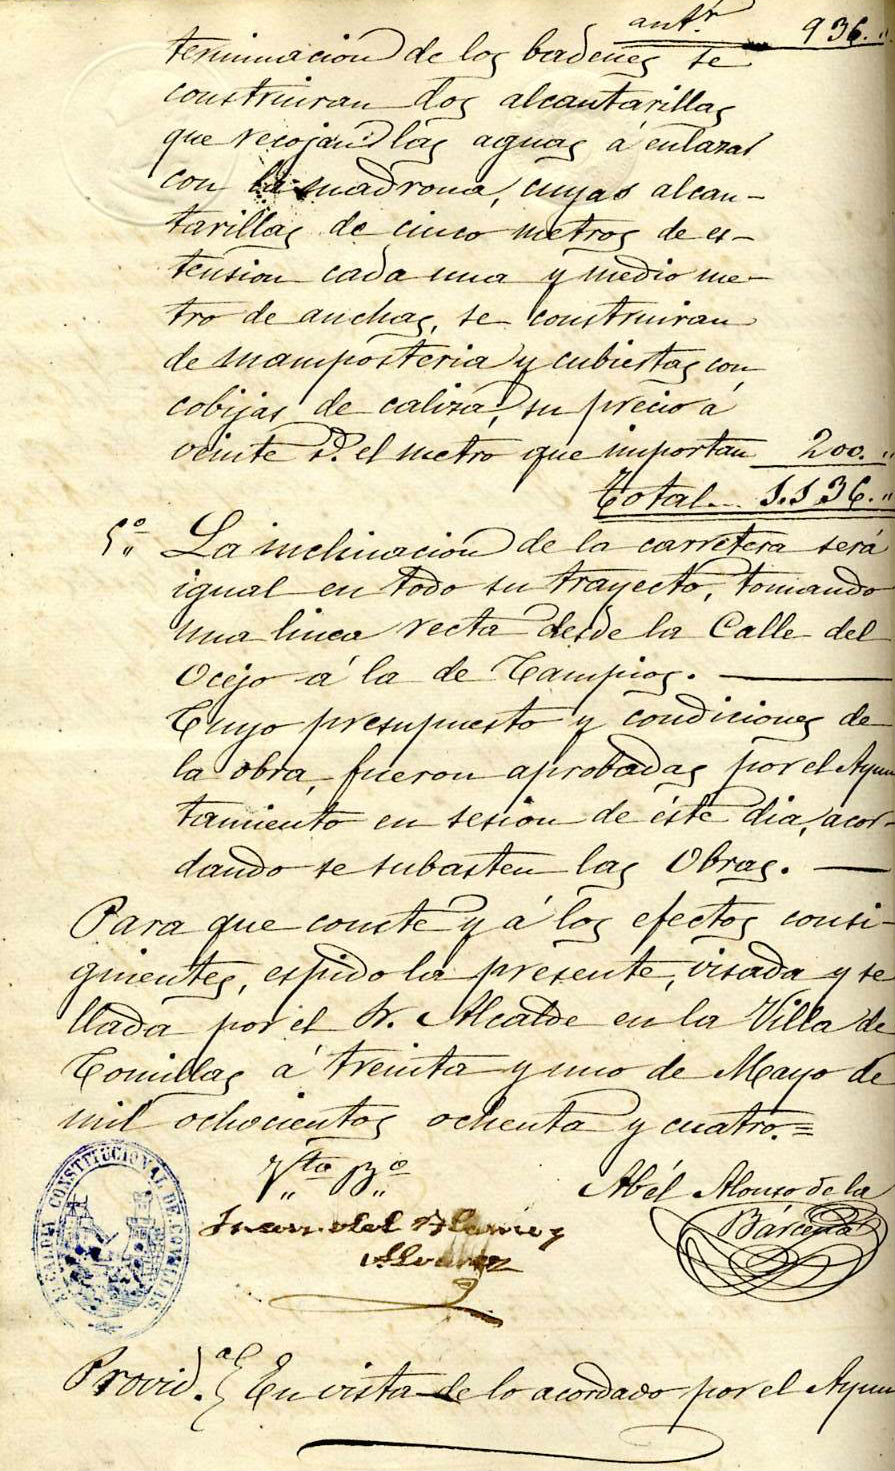 antr. 936. "
terminacion de los badenes se
construiran dos alcantarillas
que recojan las aguas á enlazar
con la madrona, cuyas alcan-
tarillas de cinco metros de es-
tension cada una y medio me-
tro de anchas, se construiran
de mamposteria y cubiertas con
cobijas de caliza, su precio á
veinte el metro que importan 200. "
Total 1.136. "
5º La inclinacion de la carretera será
igual en todo su trayecto, tomando
una linea recta desde la Calle del
Ocejo á la de Campios.
Cuyo presupuesto y condiciones de
la obra, fueron aprobadas por el Ayun
tamiento en sesion de éste dia, acor-
dando se subasten las Obras.
Para que conste y á los efectos consi-
guientes, espido la presente, visada y se
llada por el Sr. Alcalde en la Villa de
Comillas á treinta y uno de Mayo de
mil ochocientos ochenta y cuatro. =
Vto Bo
Abél Alonso de la
Bárcena
Juan del
ALCALDIA CONSTITUCIONAL DE COMILLAS
Provid.al En vista de lo acordado por el Ayun